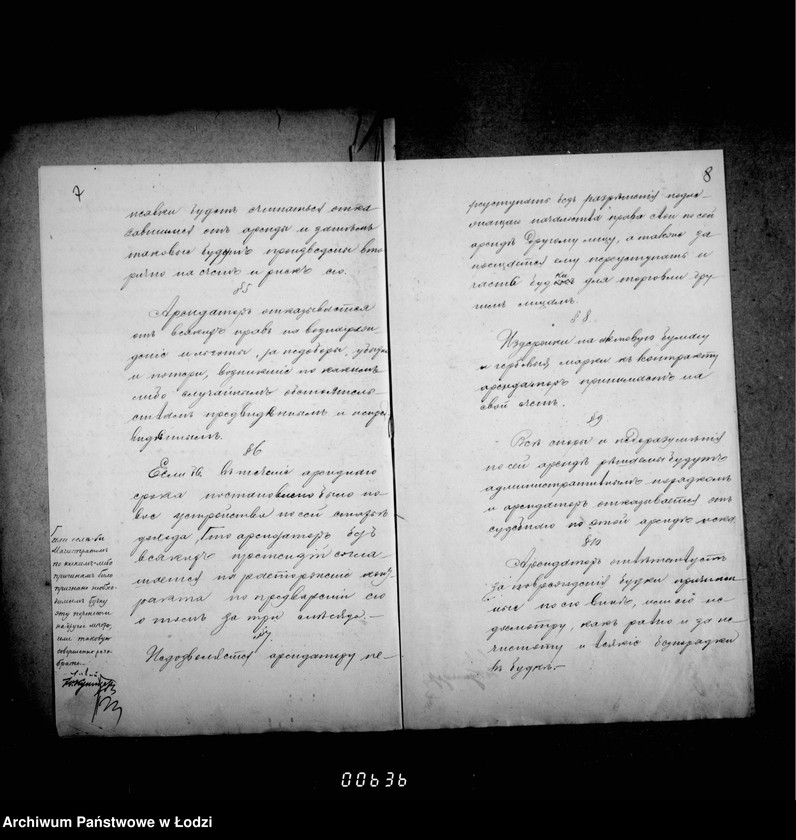 7
писавки будетъ считаться отка
завшимся отъ аренды и затѣмъ
таковые будутъ произведены вто
рично на счетъ и рискъ его.
§5
Арендаторъ отказывается
отъ всякихъ правъ на вознагражд
деніе и льготы, за недоборы, убытки
и потери, возникшіе по какимъ
либо случайнымъ обстоятель
ствамъ предвидѣннымъ и непред
видѣннымъ.
§6
Если бъ въ теченіе аренднаго
срока постановлено было но
вое устройство по сей статьѣ
дохода, то арендаторъ безъ
всякихъ претензій согла
шается на расторженіе конт
ракта по предвареніи его
о томъ за три мѣсяца.—
§7.
Недозволяется арендатору пе-
Если если бы
Магистратъ
по какимъ-либо
причинамъ было
признано необхо
димымъ будку
эту перенести
на другое мѣсто,
или таковую
совершенно
8
реуступать безъ разрѣшенія подле-
жащаго начальства права свои по сей
арендѣ другому лицу, а также за
прещается ему переуступать и
части будки для торговли дру
гимъ лицамъ.
§ 8.
Издержки на актовую бумагу
и гербовыя марки къ контракту
арендаторъ принимаетъ на
свой счетъ.
§9
Всѣ споры и недоразумѣнія
по сей арендѣ рѣшаемы будутъ
административнымъ порядкомъ
и арендаторъ отказывается отъ
судебнаго по этой арендѣ иска.
§10
Арендаторъ отвѣтствуетъ
за поврежденія будки причинен
ныя по его винѣ, или его не
досмотру, какъ равно и за не
чистоту и всякіе безпорядки
въ будкѣ.—
00636
Archiwum Państwowe w Łodzi